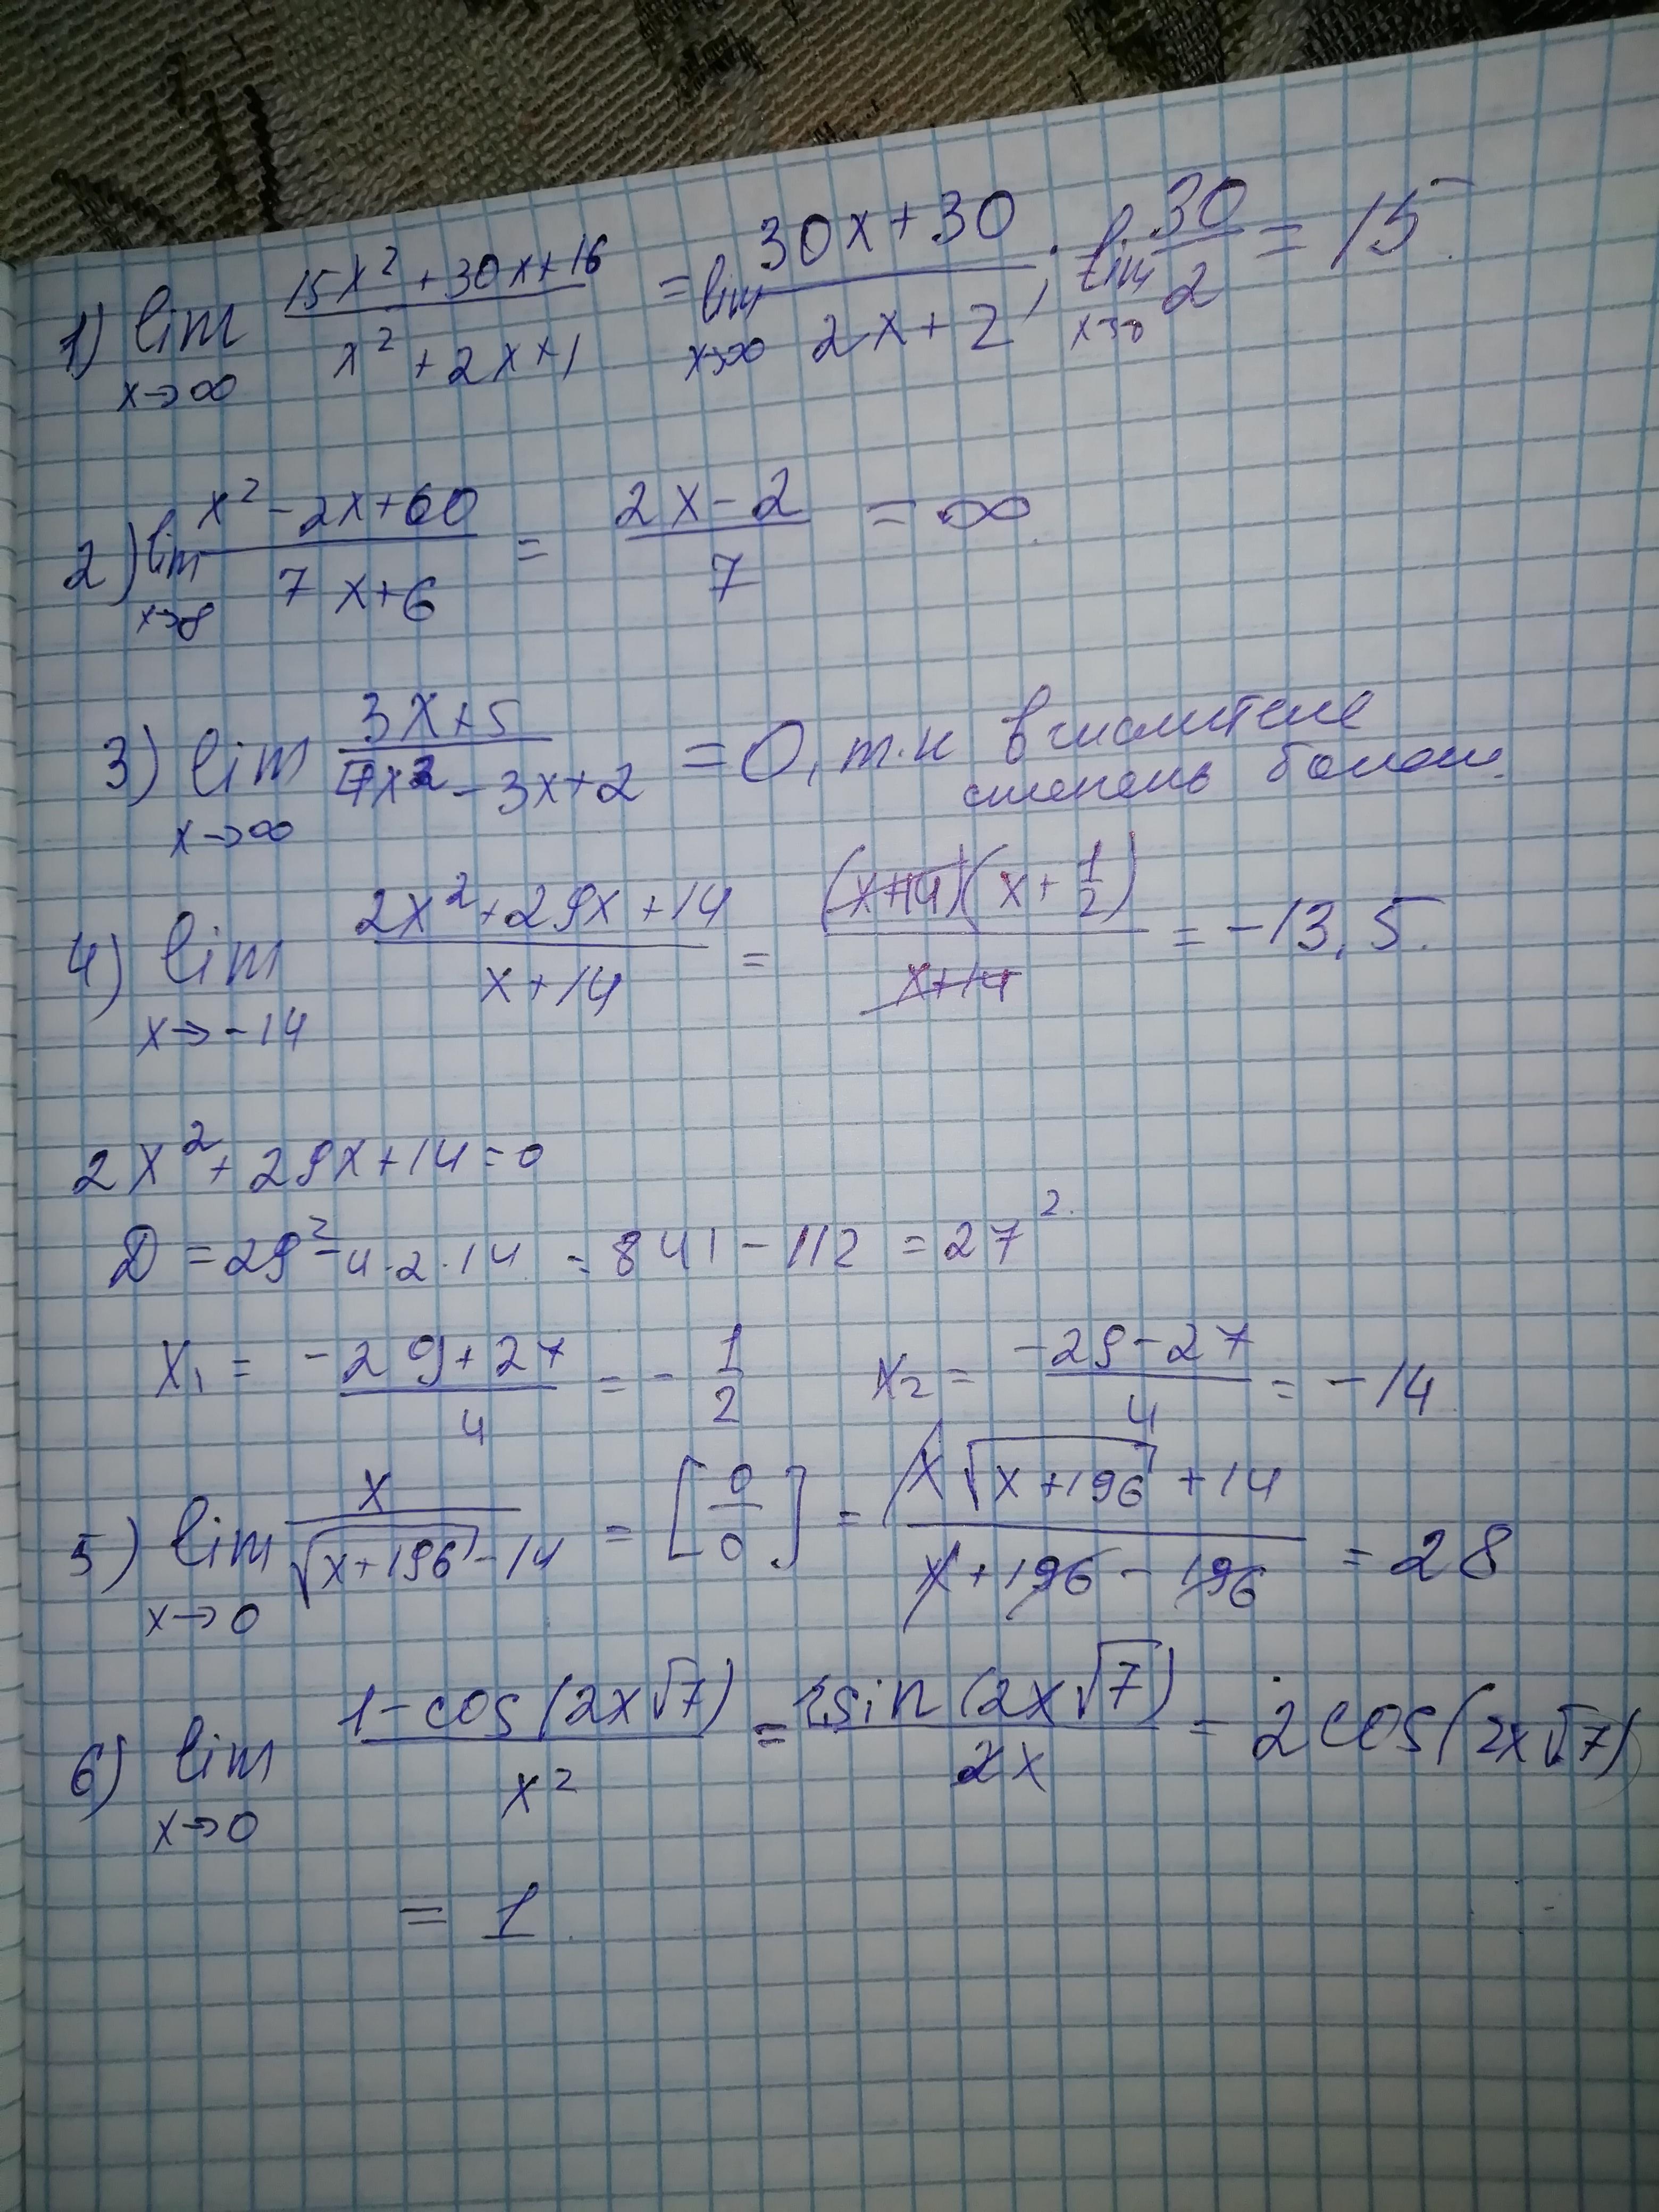 1) lim x→∞ (15x² + 30x + 16)/(x² + 2x + 1) = lim x→∞ (30x + 30)/(2x + 2); lim x→∞ 30/2 = 15.
2) lim x→∞ (x² - 2x + 60)/(7x + 6) = (2x - 2)/7 = ∞.
3) lim x→∞ (3x + 5)/(7x² - 3x + 2) = 0, т.к в числителе
степень больш.
4) lim x→ -14 (2x² + 29x + 14)/(x + 14) = (x+14)(x + 1/2)/(x+14) = -13,5.
2x² + 29x + 14 = 0
D = 29² - 4·2·14 = 841 - 112 = 27².
x₁ = (-29 + 27)/4 = - 1/2 x₂ = (-29 - 27)/4 = -14
5) lim x→0 x/(√(x+196) - 14) = [0/0] = (x√(x+196) + 14)/(x + 196 - 196) = 28
6) lim x→0 (1 - cos(2x√7))/x² = 2sin(2x√7)/2x = 2cos(2x√7)
= 1.